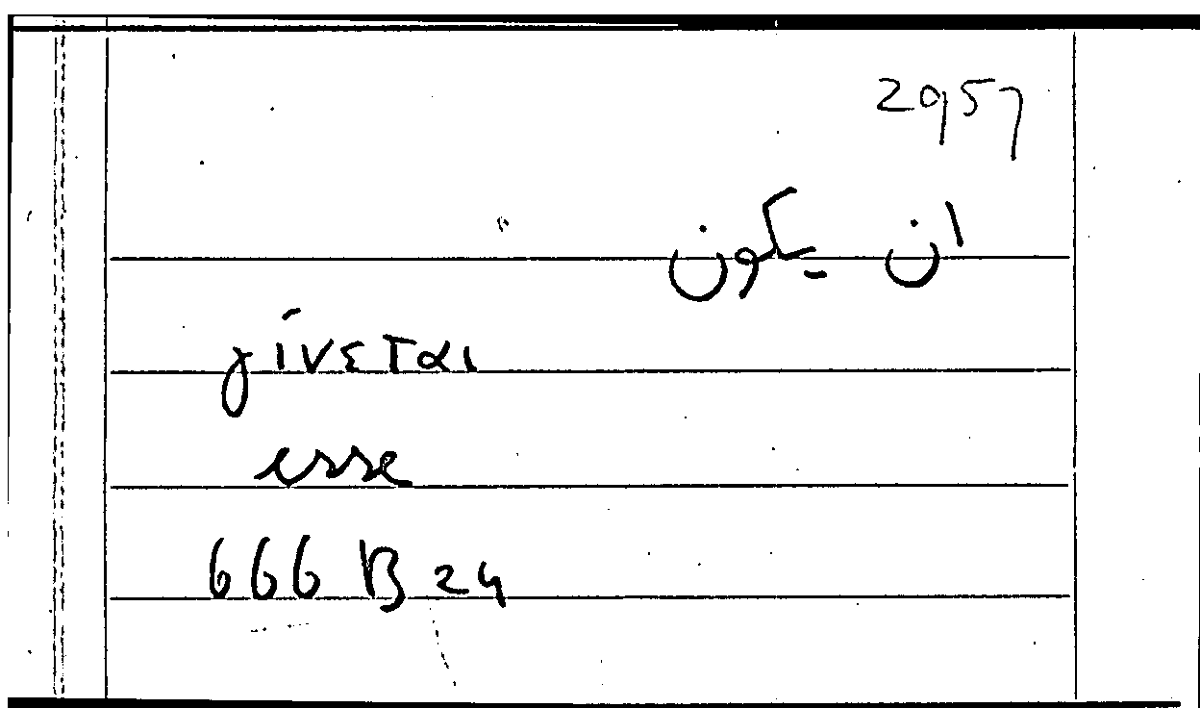 2957
ان يكون
γίνεται
esse
666 B 24